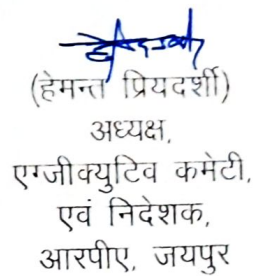 (हेमन्त प्रियदर्शी)
अध्यक्ष,
एग्जीक्युटिव कमेटी,
एवं निदेशक,
आरपीए, जयपुर